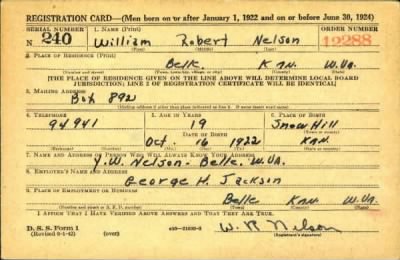 REGISTRATION CARD—(Men born on or after January 1, 1922 and on or before June 30, 1924)
SERIAL NUMBER 1. NAME (Print) ORDER NUMBER
N 240 William Robert Nelson 12288
(First) (Middle) (Last)
2. PLACE OF RESIDENCE (Print)
Belle Kan. W.Va.
(Number and street) (Town, township, village, or city) (County) (State)
[THE PLACE OF RESIDENCE GIVEN ON THE LINE ABOVE WILL DETERMINE LOCAL BOARD
JURISDICTION; LINE 2 OF REGISTRATION CERTIFICATE WILL BE IDENTICAL]
3. MAILING ADDRESS
Box 892
(Mailing address if other than place indicated on line 2. If same insert word same)
4. TELEPHONE 5. AGE IN YEARS 6. PLACE OF BIRTH
94941 19 Snow Hill
DATE OF BIRTH
Oct. 16 1922 Kan.
7. NAME AND ADDRESS OF PERSON WHO WILL ALWAYS KNOW YOUR ADDRESS
J.W. Nelson - Belle, W.Va.
8. EMPLOYER'S NAME AND ADDRESS
George H. Jackson
9. PLACE OF EMPLOYMENT OR BUSINESS
Belle Kan. W.Va.
(Number and street or R. F. D. number) (Town) (County) (State)
I AFFIRM THAT I HAVE VERIFIED ABOVE ANSWERS AND THAT THEY ARE TRUE.
D. S. S. Form 1 W. R. Nelson
(Revised 6-1-42) (over) (Registrant's signature)